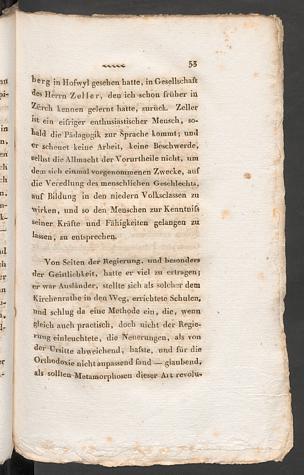 53
berg in Hofwyl gesehen hatte, in Gesellschaft
des Herrn Zeller, den ich schon früher in
Zürch kennen gelernt hatte, zurück. Zeller
ist ein eifriger enthusiastischer Mensch, so-
bald die Pädagogik zur Sprache kommt; und
er scheuet keine Arbeit, keine Beschwerde,
selbst die Allmacht der Vorurtheile nicht, um
dem sich einmal vorgenommenen Zwecke, auf
die Veredlung des menschlichen Geschlechts,
auf Bildung in den niedern Volksclassen zu
wirken, und so den Menschen zur Kenntniß
seiner Kräfte und Fähigkeiten gelangen zu
lassen, zu entsprechen.
Von Seiten der Regierung, und besonders
der Geistlichkeit, hatte er viel zu ertragen;
er war Ausländer, stellte sich als solcher dem
Kirchenrathe in den Weg, errichtete Schulen,
und schlug da eine Methode ein, die, wenn
gleich auch practisch, doch nicht der Regie-
rung einleuchtete, die Neuerungen, als von
der Ursitte abweichend, haßte, und für die
Orthodoxie nicht anpassend fand — glaubend,
als sollten Metamorphosen dieser Art revolu-